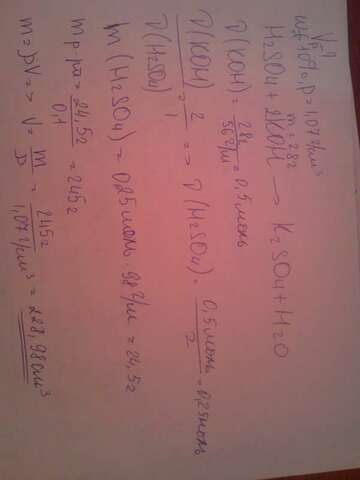 V-?
w=10% ρ=1,07 г/см³
m=28г
H₂SO₄ + 2KOH → K₂SO₄ + H₂O
ν(KOH) = 28г / 56 г/м = 0,5 моль
ν(KOH) / ν(H₂SO₄) = 2 / 1 => ν(H₂SO₄) = 0,5 моль / 2 = 0,25 моль
m(H₂SO₄) = 0,25 моль · 98 г/м = 24,5 г
m р-ра = 24,5 г / 0,1 = 245 г
m = ρV => V = m / ρ = 245 г / 1,07 г/см³ = 228,98 см³